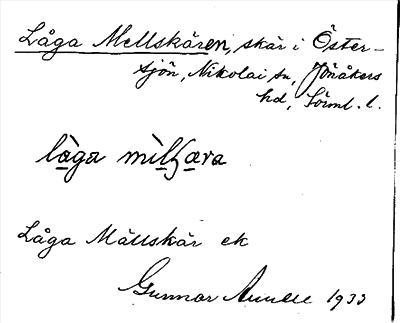 Låga Mellskären, skär i Öster-
sjön, Nikolai sn, Jönåkers
hd, Sörml. l.
làga mìlʃæra
Låga Mällskär ek
Gunnar 1933